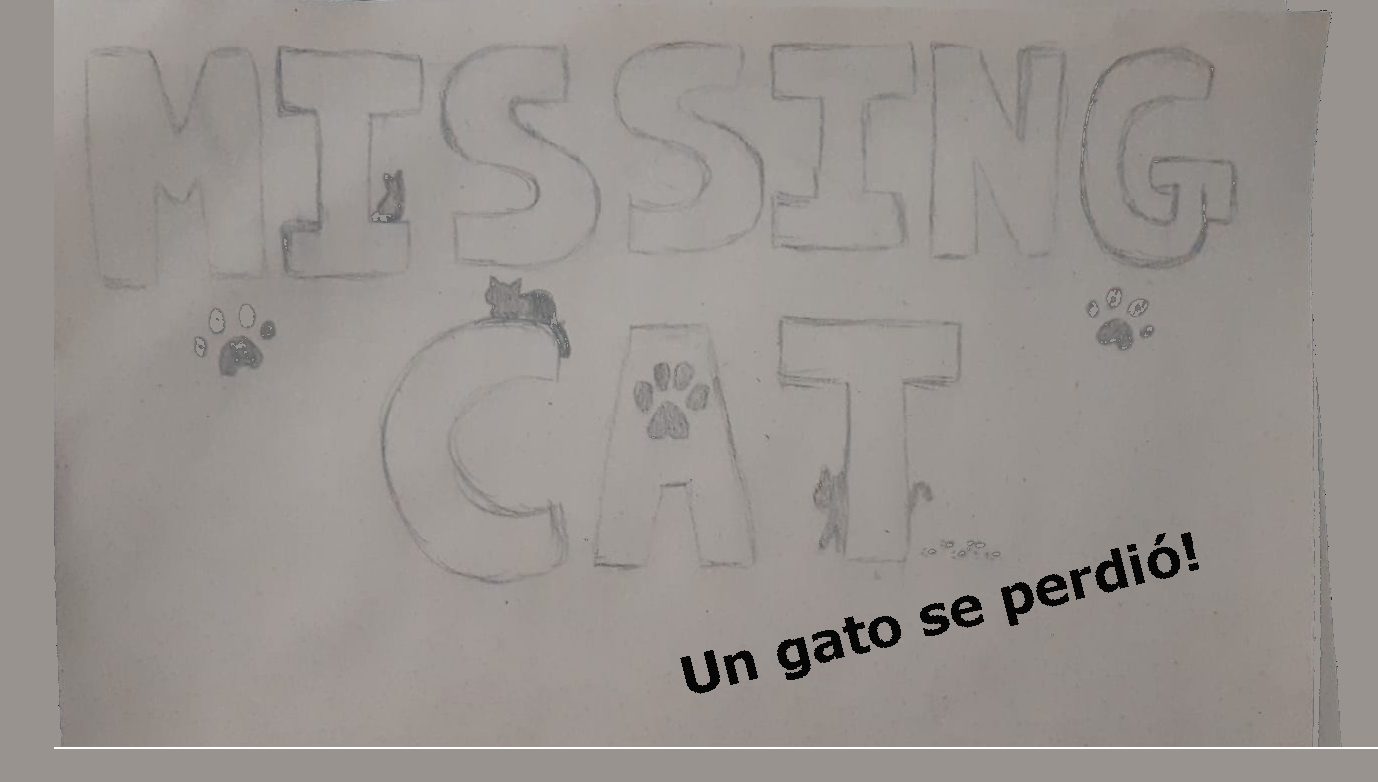 MISSING
CAT
Un gato se perdió!